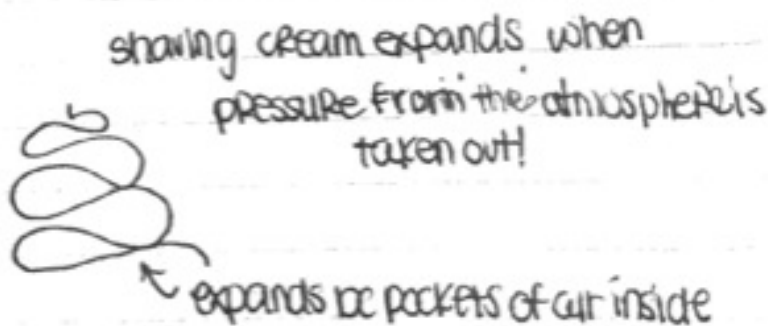 shaving cream expands when
pressure from the atmosphere is
taken out!
expands bc pockets of air inside